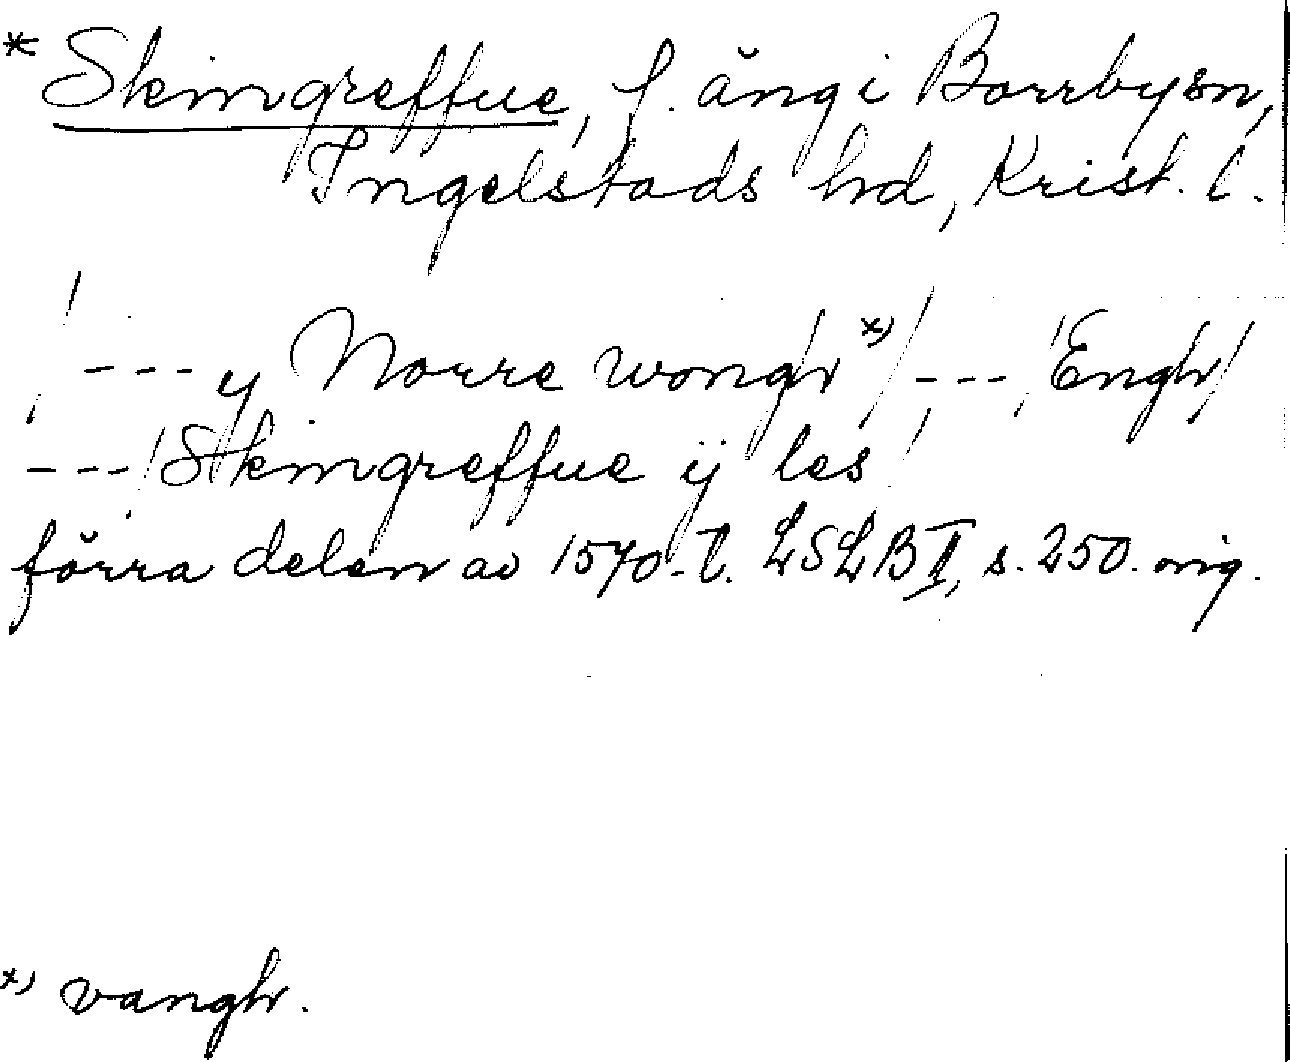 * Skimgreffue, f. äng i Borrby sn,
Ingelstads hd, Krist. l.
/ --- y Norre wongh *) / --- / Engh /
--- / Skimgreffue ij les /
förra delen av 1570-t. LSLB II, s. 250. orig.
*) vangh.